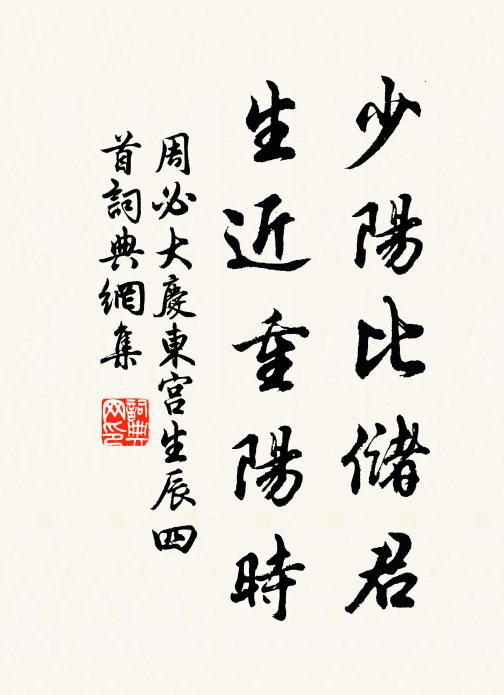 少陽比儲君
生近重陽時
周必大慶東宮生辰四
首詞典網集
詞典
网印